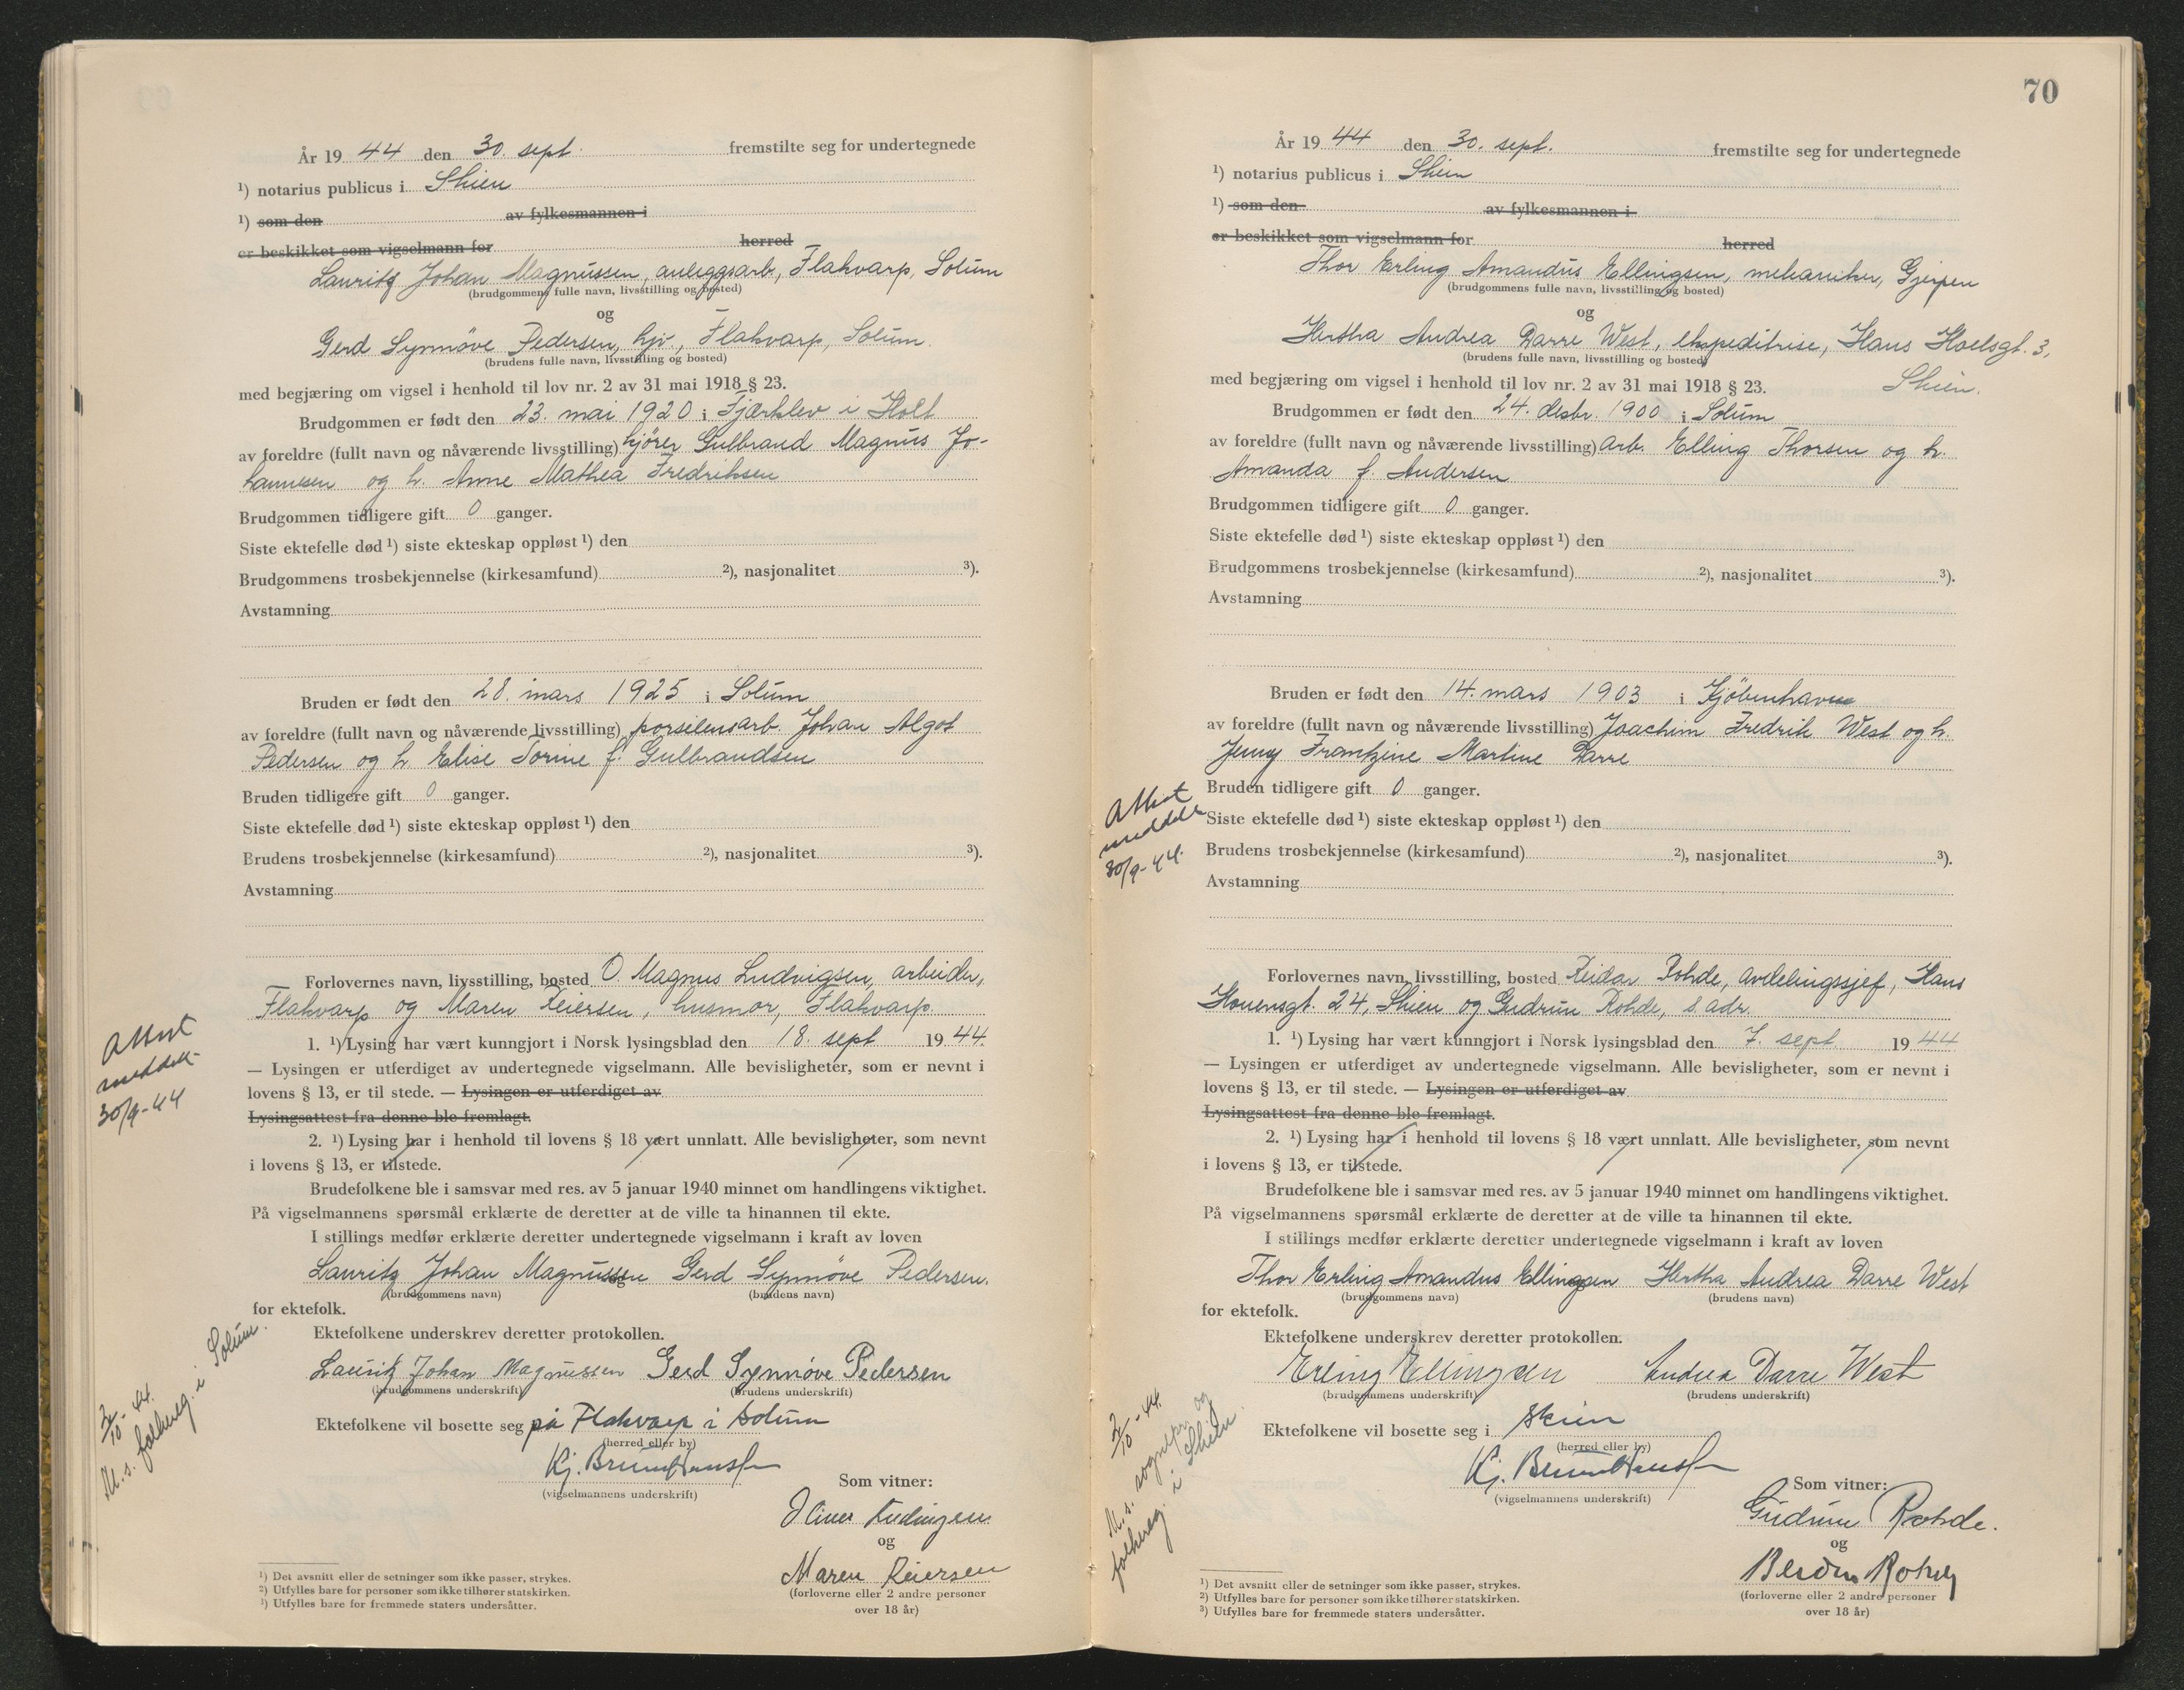 År 19 44 den 30. sept. fremstilte seg for undertegnede
¹) notarius publicus i Skien
¹) som den av fylkesmannen i
er beskikket som vigselmann for herred
Lauritz Johan Magnussen, anleggsarb., Flakvarp, Solum
(brudgommens fulle navn, livsstilling og bosted)
og
Gerd Synnöve Pedersen, hjv., Flakvarp, Solum.
(brudens fulle navn, livsstilling og bosted)
med begjæring om vigsel i henhold til lov nr. 2 av 31 mai 1918 § 23.
Brudgommen er født den 23. mai 1920 i Fjærklev i Holt
av foreldre (fullt navn og nåværende livsstilling) kjörer Gulbrand Magnus Jo-
hannesen og h. Anne Mathea Fredriksen
Brudgommen tidligere gift 0 ganger.
Siste ektefelle død ¹) siste ekteskap oppløst ¹) den
Brudgommens trosbekjennelse (kirkesamfund) ²), nasjonalitet ³).
Avstamning
Bruden er født den 28. mars 1925 i Solum
av foreldre (fullt navn og nåværende livsstilling) porselensarb. Johan Algot
Pedersen og h. Elise Torine f. Gulbrandsen
Bruden tidligere gift 0 ganger.
Siste ektefelle død ¹) siste ekteskap oppløst ¹) den
Brudens trosbekjennelse (kirkesamfund) ²), nasjonalitet ³).
Avstamning
Forlovernes navn, livsstilling, bosted O. Magnus Ludvigsen, arbeider,
Flakvarp og Maren Reiersen, husmor, Flakvarp
1. ¹) Lysing har vært kunngjort i Norsk lysingsblad den 18. sept 19 44.
— Lysingen er utferdiget av undertegnede vigselmann. Alle bevisligheter, som er nevnt i
lovens § 13, er til stede. — Lysingen er utferdiget av
Lysingsattest fra denne ble fremlagt.
2. ¹) Lysing har i henhold til lovens § 18 vært unnlatt. Alle bevisligheter, som nevnt
i lovens § 13, er tilstede.
Brudefolkene ble i samsvar med res. av 5 januar 1940 minnet om handlingens viktighet.
På vigselmannens spørsmål erklærte de deretter at de ville ta hinannen til ekte.
I stillings medfør erklærte deretter undertegnede vigselmann i kraft av loven
Lauritz Johan Magnussen Gerd Synnöve Pedersen.
(brudgommens navn) (brudens navn)
for ektefolk.
Ektefolkene underskrev deretter protokollen.
Lauritz Johan Magnussen Gerd Synnöve Pedersen
(brudgommens underskrift) (brudens underskrift)
Ektefolkene vil bosette seg på Flakvarp i Solum
(herred eller by)
Kj.
(vigselmannens underskrift)
Som vitner:
og
Maren Reiersen
(forloverne eller 2 andre personer
over 18 år)
¹) Det avsnitt eller de setninger som ikke passer, strykes.
²) Utfylles bare for personer som ikke tilhører statskirken.
³) Utfylles bare for fremmede staters undersåtter.
Attest
meddelt
30/9-44
2/10-44.
M. s. folkereg. i Solum.
70
År 19 44 den 30. sept. fremstilte seg for undertegnede
¹) notarius publicus i Skien
¹) som den av fylkesmannen i
er beskikket som vigselmann for herred
Thor Erling Amandus Ellingsen, mekaniker, Gjerpen
(brudgommens fulle navn, livsstilling og bosted)
og
Hertha Andrea Darre West, ekspeditrise, Hans Hoelsgt. 3,
(brudens fulle navn, livsstilling og bosted)
Skien.
med begjæring om vigsel i henhold til lov nr. 2 av 31 mai 1918 § 23.
Brudgommen er født den 24. desbr. 1900 i Solum
av foreldre (fullt navn og nåværende livsstilling) Arb. Elling Thorsen og h.
Amanda f. Andersen
Brudgommen tidligere gift 0 ganger.
Siste ektefelle død ¹) siste ekteskap oppløst ¹) den
Brudgommens trosbekjennelse (kirkesamfund) ²), nasjonalitet ³).
Avstamning
Bruden er født den 14. mars 1903 i Kjöbenhavn
av foreldre (fullt navn og nåværende livsstilling) Joachim Fredrik West og h.
Jenny Frantzine Martine Darre
Bruden tidligere gift 0 ganger.
Siste ektefelle død ¹) siste ekteskap oppløst ¹) den
Brudens trosbekjennelse (kirkesamfund) ²), nasjonalitet ³).
Avstamning
Forlovernes navn, livsstilling, bosted Reidar Rohde, avdelingssjef, Hans
Houensgt. 24, Skien og Gudrun Rohde, s. adr.
1. ¹) Lysing har vært kunngjort i Norsk lysingsblad den 7. sept. 19 44
— Lysingen er utferdiget av undertegnede vigselmann. Alle bevisligheter, som er nevnt i
lovens § 13, er til stede. — Lysingen er utferdiget av
Lysingsattest fra denne ble fremlagt.
2. ¹) Lysing har i henhold til lovens § 18 vært unnlatt. Alle bevisligheter, som nevnt
i lovens § 13, er tilstede.
Brudefolkene ble i samsvar med res. av 5 januar 1940 minnet om handlingens viktighet.
På vigselmannens spørsmål erklærte de deretter at de ville ta hinannen til ekte.
I stillings medfør erklærte deretter undertegnede vigselmann i kraft av loven
Thor Erling Amandus Ellingsen Hertha Andrea Darre West
(brudgommens navn) (brudens navn)
for ektefolk.
Ektefolkene underskrev deretter protokollen.
Erling Ellingsen Andrea Darre West
(brudgommens underskrift) (brudens underskrift)
Ektefolkene vil bosette seg i Skien
(herred eller by)
Kj.
(vigselmannens underskrift)
Som vitner:
Gudrun Rohde.
og
(forloverne eller 2 andre personer
over 18 år)
¹) Det avsnitt eller de setninger som ikke passer, strykes.
²) Utfylles bare for personer som ikke tilhører statskirken.
³) Utfylles bare for fremmede staters undersåtter.
Attest
meddelt
30/9-44.
2/10-44.
M. s. sognepr. og
folkereg. i Skien.